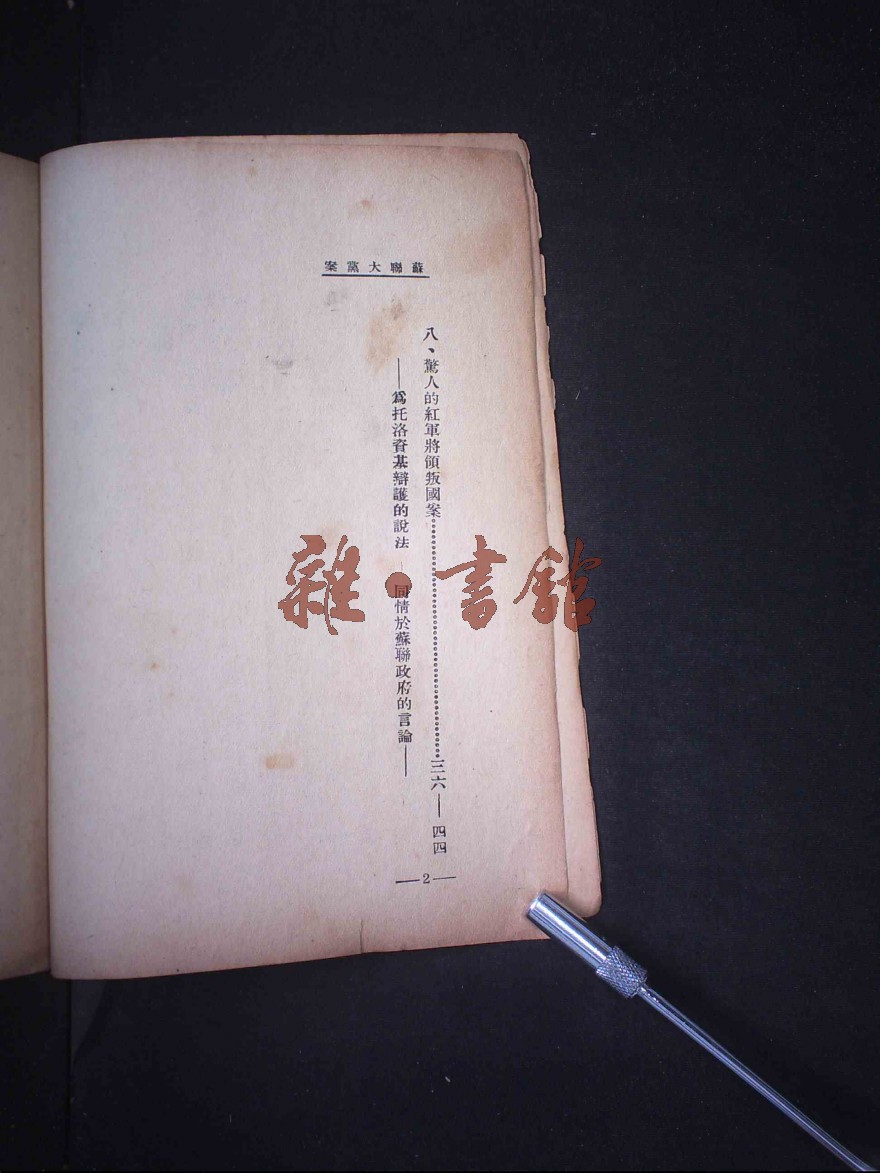 蘇聯大黨案
八、驚人的紅軍將領叛國案……三六——四四
——為托洛資基辯護的說法 同情於蘇聯政府的言論——
—2—
雜·書館